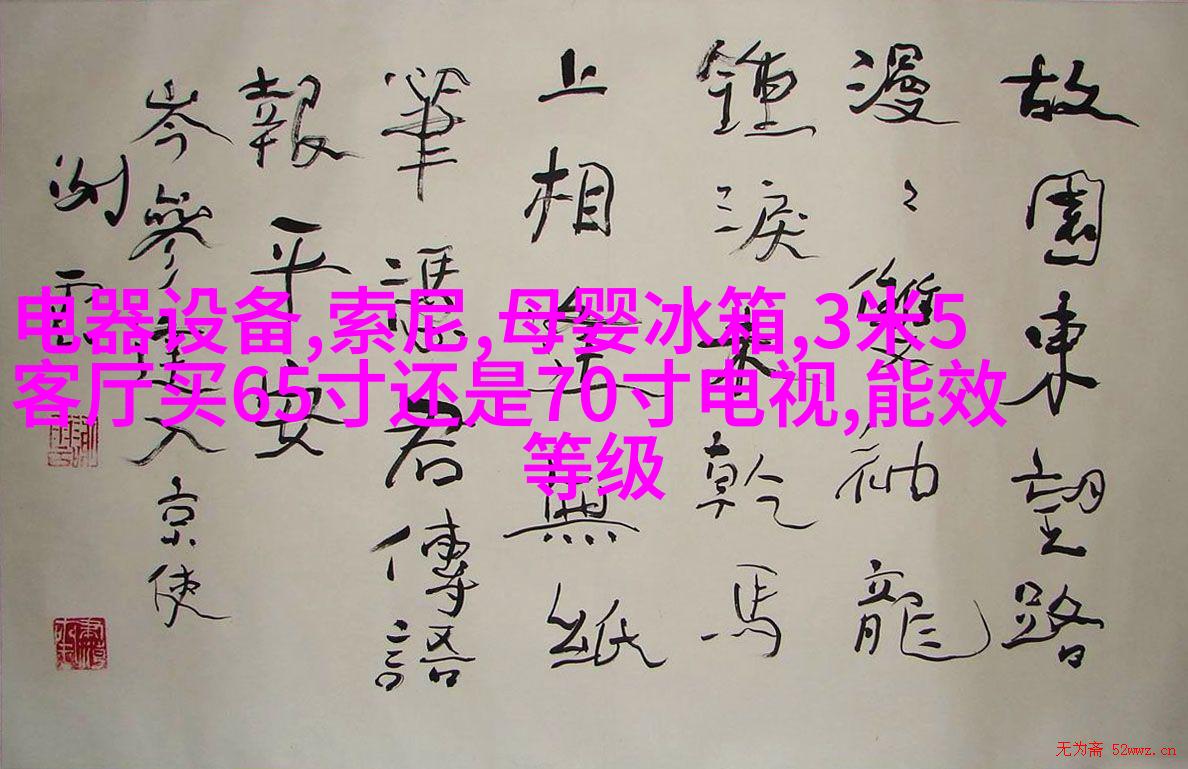 故園東望路
漫〻雙袖龍
鍾淚乾馬
上相逢無紙
筆憑君傳語
報平安
岑參逢入京使
电器设备,索尼,母婴冰箱,3米5
客厅买65寸还是70寸电视,能效
等级
无为斋 52wwz.cn